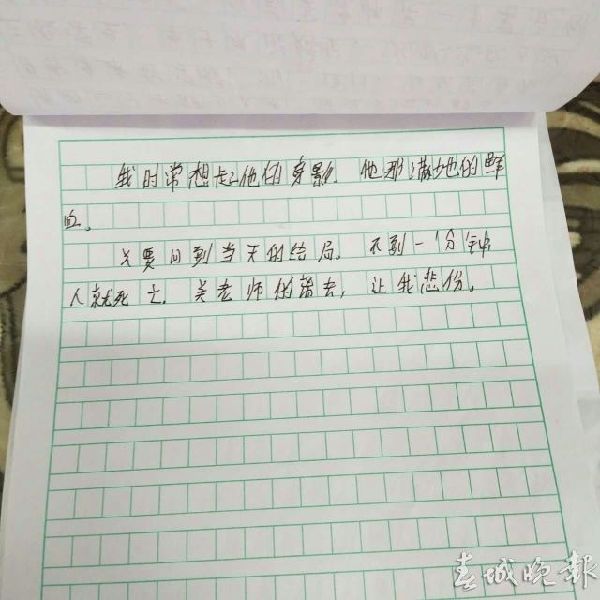 我时常想起他的身影，他那满地的鲜
血。
只要回到当天的结局，不到一分钟
人就死亡，吴老师的落去，让我悲伤。
春城晚报